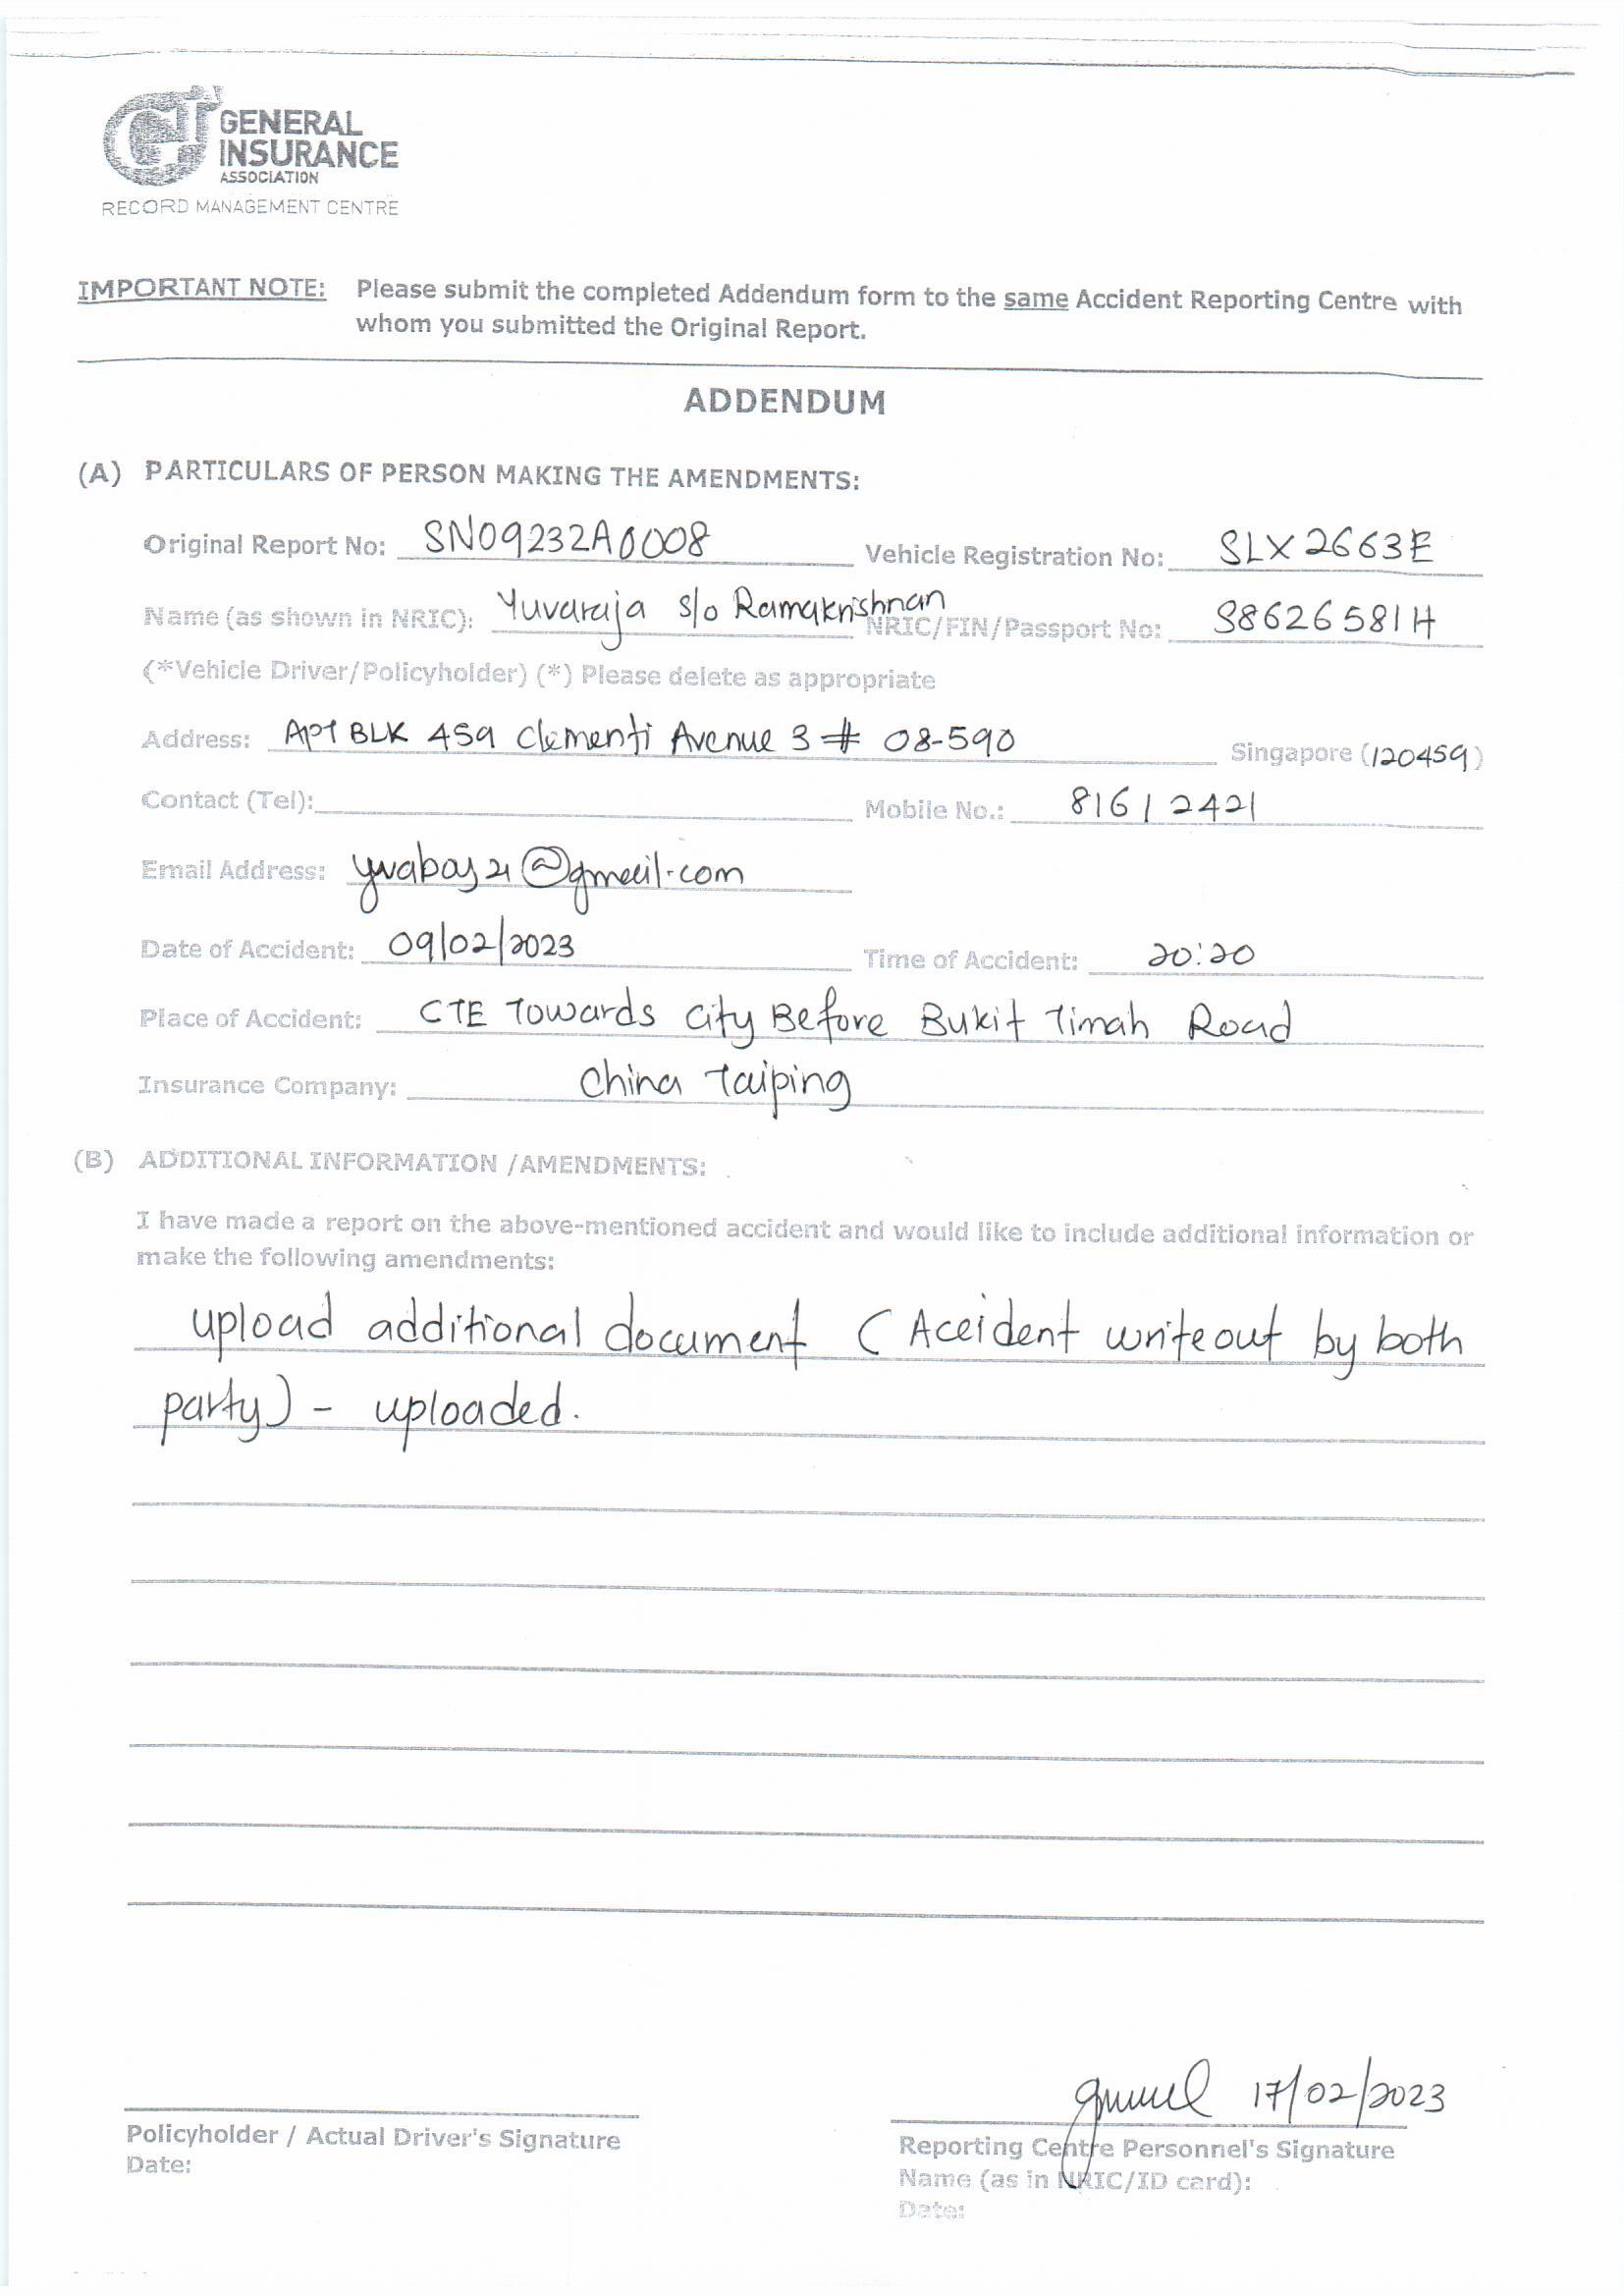 GENERAL
INSURANCE
ASSOCIATION
RECORD MANAGEMENT CENTRE
IMPORTANT NOTE: Please submit the completed Addendum form to the same Accident Reporting Centre with
whom you submitted the Original Report.
ADDENDUM
(A) PARTICULARS OF PERSON MAKING THE AMENDMENTS:
Original Report No: SN09232A0008 Vehicle Registration No: SLX2663E
Name (as shown in NRIC): Yuvaraja s/o Ramakrishnan NRIC/FIN/Passport No: S8626581H
(*Vehicle Driver/Policyholder) (*) Please delete as appropriate
Address: Apt BLK 459 Clementi Avenue 3 # 08-590 Singapore (120459)
Contact (Tel): Mobile No.: 8161 2421
Email Address: @gmail.com
Date of Accident: 09/02/2023 Time of Accident: 20:20
Place of Accident: CTE Towards City Before Bukit Timah Road
Insurance Company: China Taiping
(B) ADDITIONAL INFORMATION /AMENDMENTS:
I have made a report on the above-mentioned accident and would like to include additional information or
make the following amendments:
upload additional document (Accident writeout by both
party) - uploaded.
17/02/2023
Policyholder / Actual Driver's Signature Reporting Centre Personnel's Signature
Date: Name (as in NRIC/ID card):
Date: